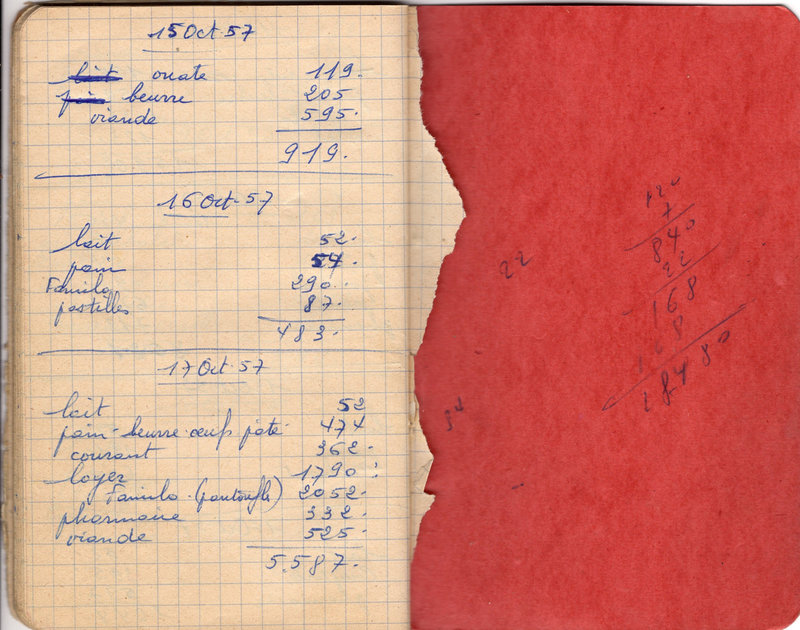 15 Oct. 57
lait ouate 119.
pain beurre 205
viande 595.
919.
16 Oct. 57
lait 52.
pain 54.
Familo 290.
pastilles 87.
483.
17 Oct. 57
lait 52
pain - beurre - œufs pâte 474
courant 362.
loyer 1790.
Familo. (pantoufle) 2052.
pharmacie 332.
viande 525.
5.587.
120
7
840
22
22
168
168
18480
34